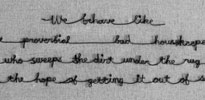 We behave like
proverbial bad housekeepe
who sweeps the dirt under the rug
the hope of getting it out of s